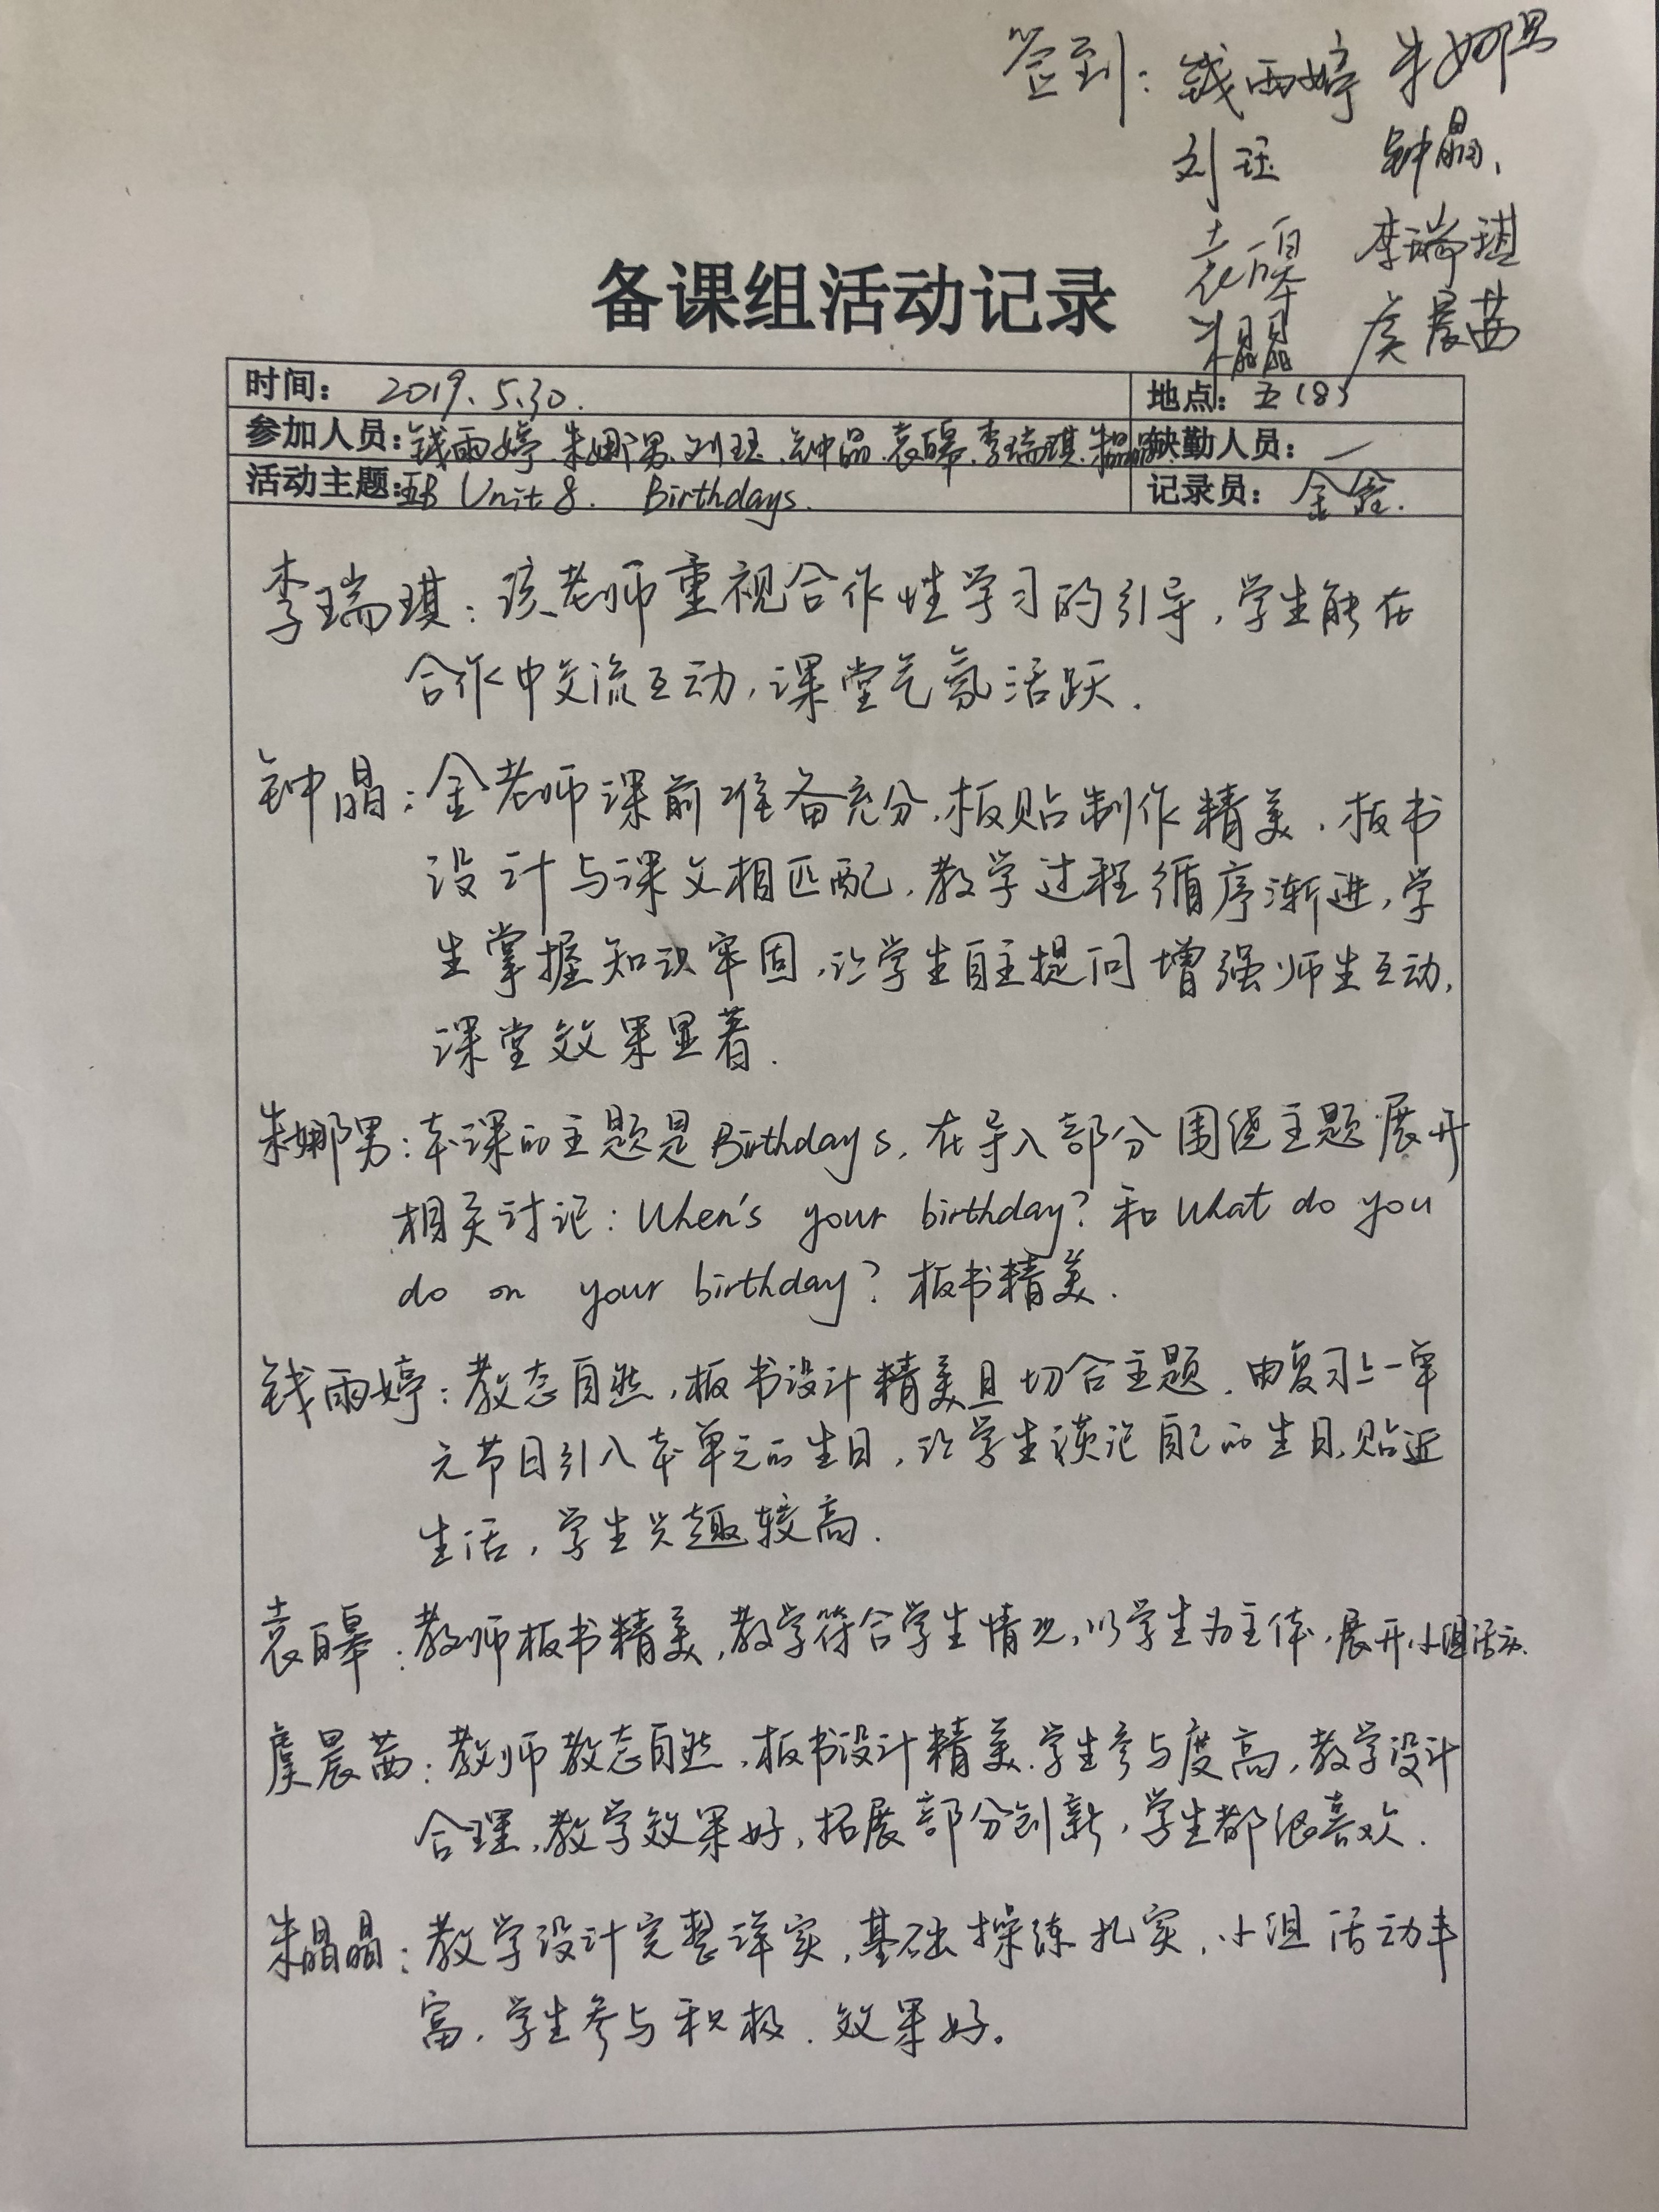 签到：钱雨婷 朱娜男
刘珏 钟晶
袁皞 李瑞琪
朱晶晶 虞晨茜
备课组活动记录
时间： 2019.5.30. 地点：五（8）
参加人员：钱雨婷.朱娜男.刘珏.钟晶.袁皞.李瑞琪.朱晶晶 缺勤人员：—
活动主题：5B Unit 8. Birthdays. 记录员：金鑫.
李瑞琪：该老师重视合作性学习的引导，学生能在
合作中交流互动，课堂气氛活跃.
钟晶：金老师课前准备充分，板贴制作精美，板书
设计与课文相匹配，教学过程循序渐进，学
生掌握知识牢固，让学生自主提问增强师生互动，
课堂效果显著.
朱娜男：本课的主题是Birthdays，在导入部分围绕主题展开
相关讨论：When's your birthday？和 What do you
do on your birthday？板书精美.
钱雨婷：教态自然，板书设计精美且切合主题，由复习上一单
元节日引入本单元的生日，让学生谈论自己的生日，贴近
生活，学生兴趣较高.
袁皞：教师板书精美，教学符合学生情况，以学生为主体，展开小组活动.
虞晨茜：教师教态自然，板书设计精美.学生参与度高，教学设计
合理，教学效果好，拓展部分创新，学生都很喜欢.
朱晶晶：教学设计完整详实，基础操练扎实，小组活动丰
富，学生参与积极，效果好。